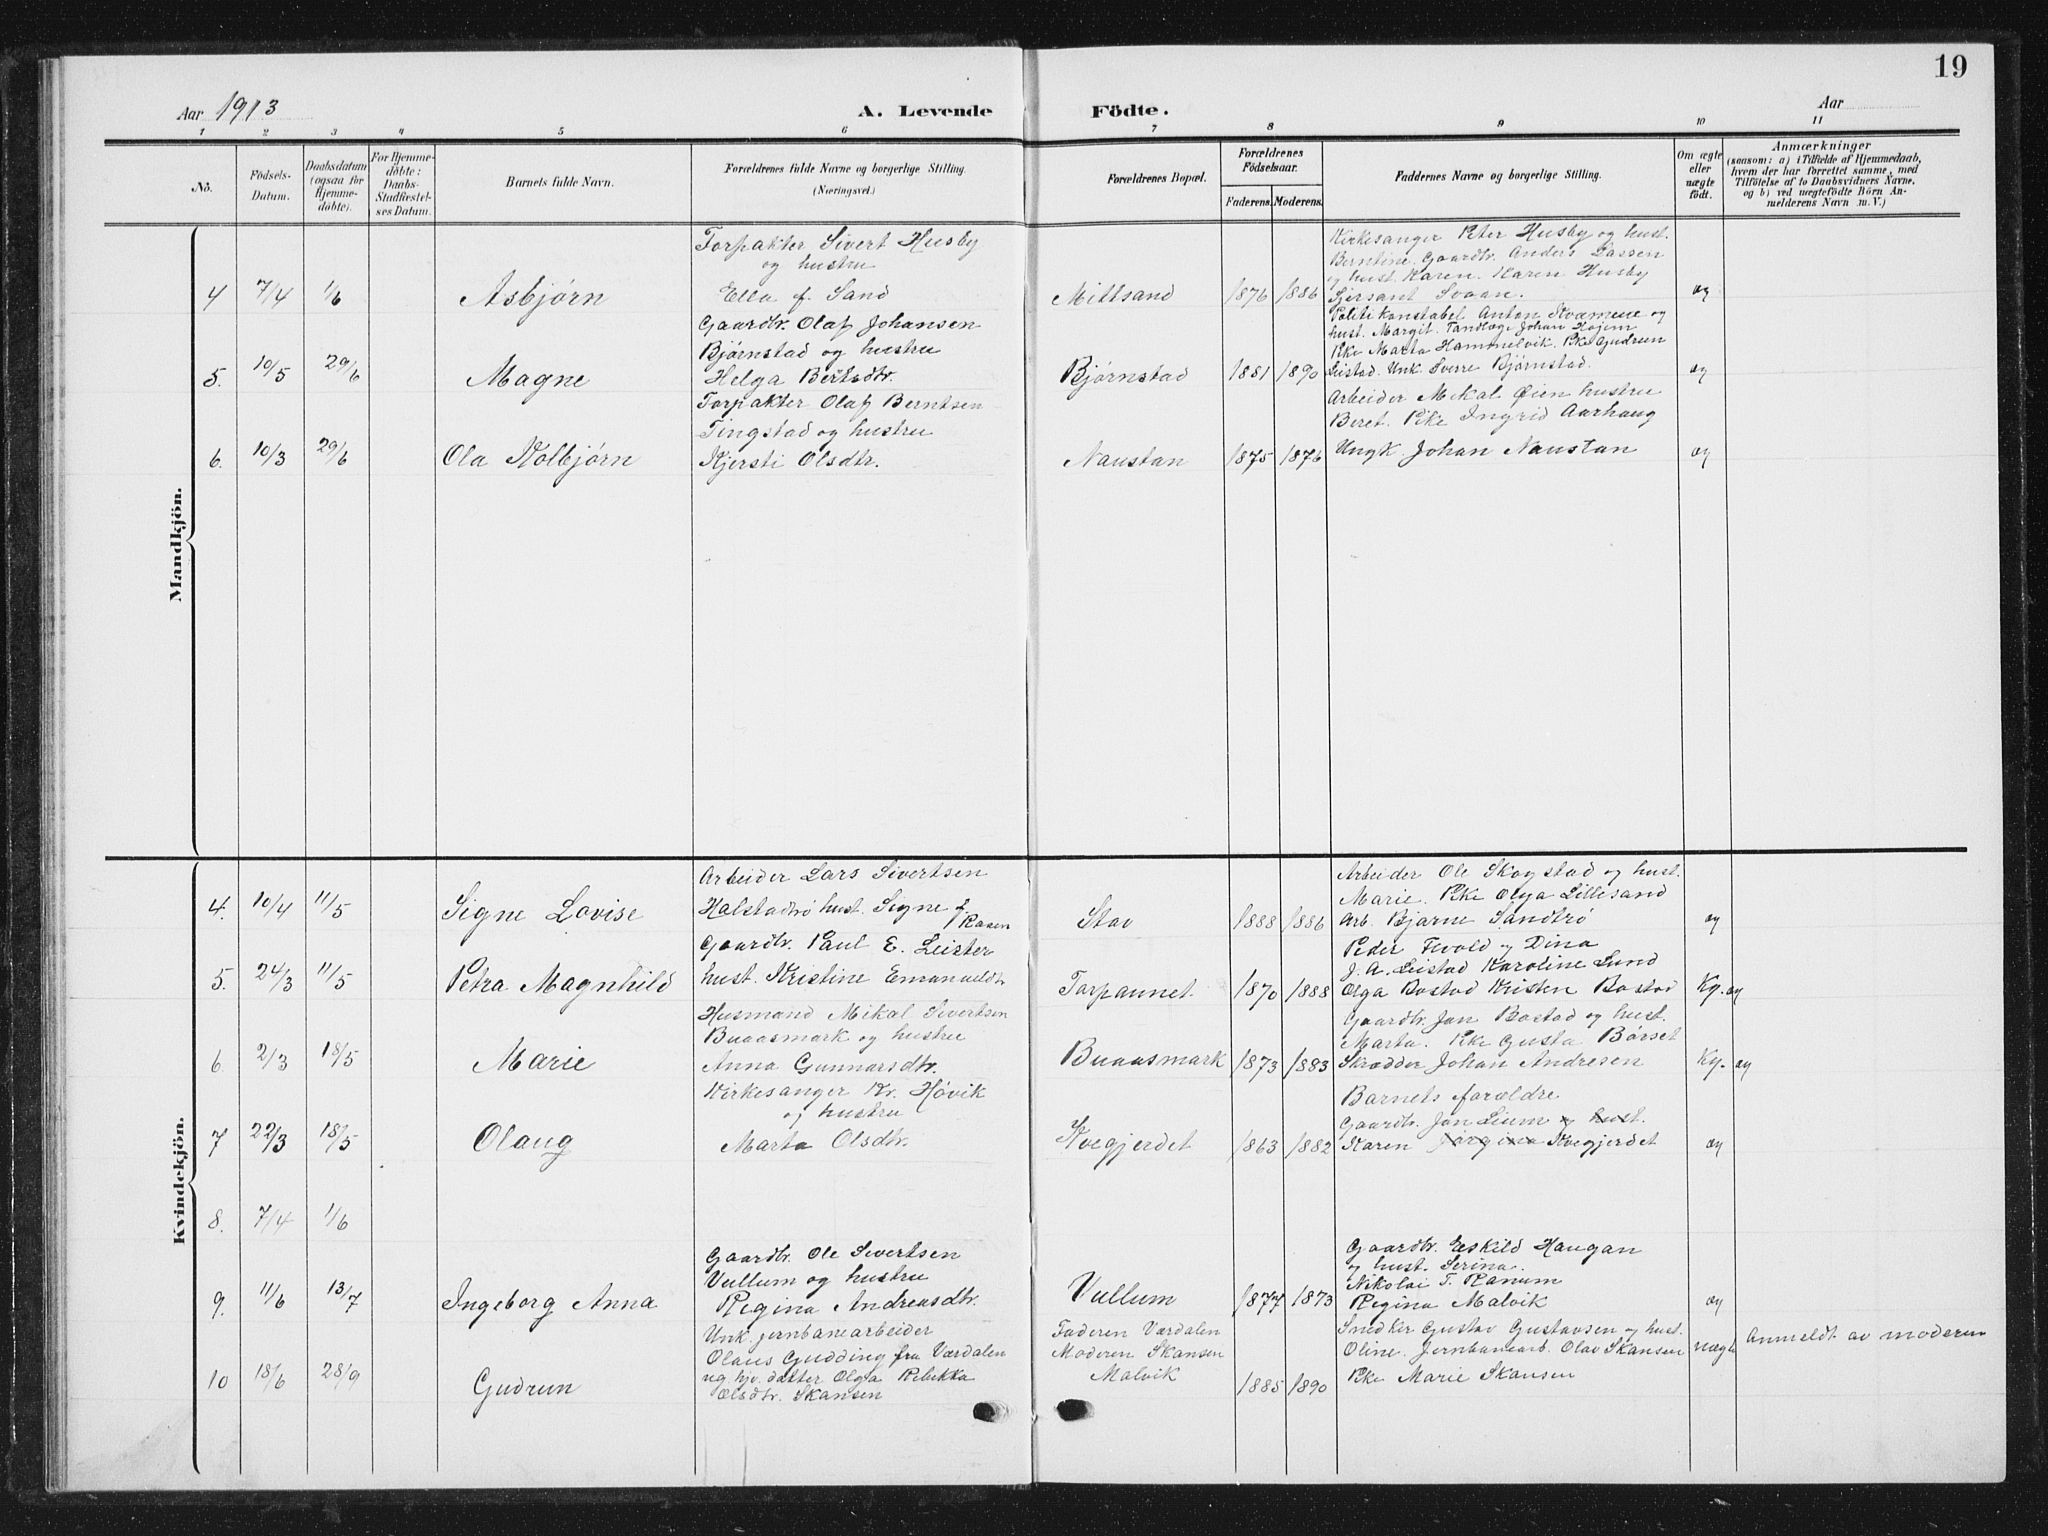 19
Aar 1913
A. Levende Födte.
Aar
1 2 3 4 5 6 7 8 9 10 11
Nö.
Födsels-Datum.
Daabsdatum (ogsaa for Hjemme-döbte).
For Hjemme-döbte: Daabs-Stadfæstel-ses Datum.
Barnets fulde Navn.
Forældrenes fulde Navne og borgerlige Stilling.
(Næringsvei.)
Forældrenes Bopæl.
Forældrenes Födselsaar.
Faderens. Moderens.
Faddernes Navne og borgerlige Stilling.
Om ægte eller uægte födt.
Anmærkninger
(saasom: a) i Tilfælde af Hjemmedaab,
hvem der har forrettet samme, med
Tilföielse af to Daabsvidners Navne,
og b) ved uægtefödte Börn An-
melderens Navn m. V.)
Mandkjön.
4 7/4 1/6 Asbjørn
Forpakter Sivert Husby
og hustru
Ella f. Sand
Mittsand 1876 1886
Kirkesanger Peter Husby og hust.
Berntine. Gaardbr. Anders Lassen
og hust. Karen. Karen Husby
Sjersant Svaan.
æg
5. 10/5 29/6 Magne
Gaardbr. Olaf Johansen
Bjørnstad og hustru
Helga Bertsdtr.
Bjørnstad 1881 1890
Politikonstabel Anton Kvamene og
hust. Margit. Tandlæge Johan Hojem
Pike Marta Hammelvik. Pike Gudrun
Leistad. Unk. Sverre Bjørnstad.
æg
6. 10/3 29/6 Ola Kolbjørn
Forpakter Olaf Berntsen
Tingstad og hustru
Kjersti Olsdtr.
Naustan 1875 1876
Arbeider Mikal Øien hustru
Beret. Pike Ingrid Aarhaug
Ungk. Johan Naustan
æg
Kvindekjön.
4. 10/4 11/5 Signe Lovise
Arbeider Lars Sivertsen
Halstadtrø hust. Signe f.
Raaen
Stav 1888 1886
Arbeider Ole Skogstad og hust.
Marie. Pike Olga Lillesand
Arb. Bjarne Sandtrø
æg
5. 24/3 11/5 Petra Magnhild
Gaardbr. Paul E. Leister
hust. Kristine Emanueldtr
Torpaunet. 1870 1888
Peder Hvold og Dina
J. A. Leistad Karoline Lund
Olga Bostad Kristen Bostad
Kg. æg
6. 2/3 18/5 Marie
Husmand Mikal Sivertsen
Buaasmark og hustru
Anna Gunnarsdtr.
Buaasmark 1873 1883
Gaardbr. Jon Bostad og hust.
Marta. Pike Gusta Børset
Skrædder Johan Andresen
Kg. æg
7 22/3 18/5 Olaug
Kirkesanger Kr. Høvik
og hustru
Marta Olsdtr.
Kvegjerdet 1863 1882
Barnets forældre
Gaardbr. Jon Leium og hust.
Karen Jørgina Kvegjerdet
æg
8. 7/4 1/6
9. 11/6 13/7 Ingeborg Anna
Gaardbr. Ole Sivertsen
Vullum og hustru
Regina Andreasdtr.
Vullum 1877 1873
Gaardbr. Eskild Haugan
og hust. Serina.
Nikolai T. Ranum
Regina Malvik
æg
10 18/6 28/9 Gudrun
Unk. jernbanearbeider
Olaus Gudding fra Værdalen
ug. hjv. datter Olga Rebekka
Olsdtr. Skansen
Faderen Værdalen
Moderen Skansen
Malvik
1885 1890
Snedker Gustav Gustavsen og hust.
Oline. Jernbanearb. Olav Skansen
Pike Marie Skansen
uægte
Anmeldt av moderen